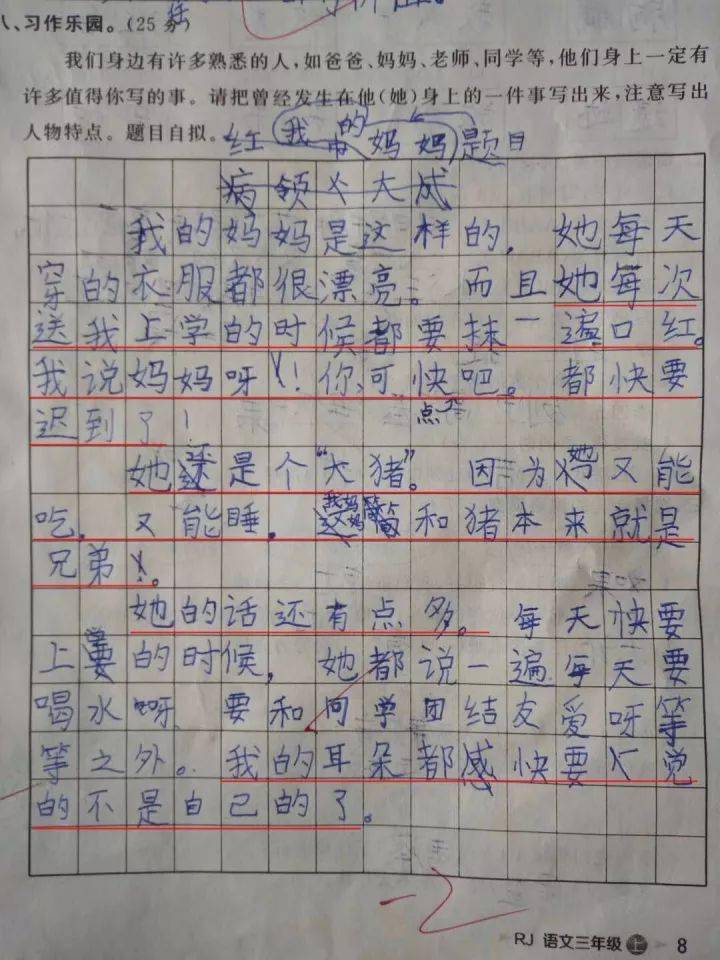 八、习作乐园。(25分)
我们身边有许多熟悉的人,如爸爸、妈妈、老师、同学等,他们身上一定有
许多值得你写的事。请把曾经发生在他(她)身上的一件事写出来,注意写出
人物特点。题目自拟。
我的妈妈 题目
病领人大成
我的妈妈是这样的,她每天
穿的衣服都很漂亮。而且她每次
送我上学的时候都要抹一遍口红。
我说妈妈呀!你可快吧。都快要
点
迟到了!
她还是个“大猪”。因为她又能
吃,又能睡,我妈妈简和猪本来就是
兄弟。
她的话还有点多。每天快要
上学的时候,她都说一遍每天要
喝水呀要和同学团结友爱呀等
等之外。我的耳朵都感快要觉
的不是自己的了。
-2
RJ 语文三年级 上 8